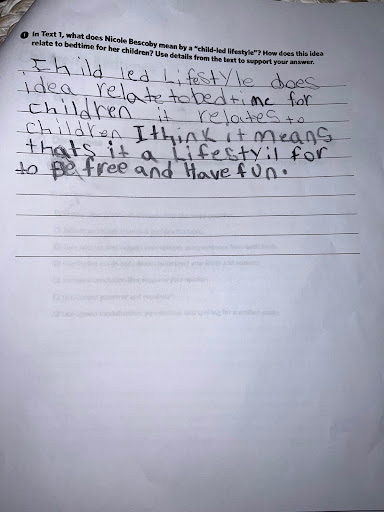 1 In Text 1, what does Nicole Bescoby mean by a "child-led lifestyle"? How does this idea
relate to bedtime for her children? Use details from the text to support your answer.
child led Lifestyle does
idea relate to bedtime for
children it relates to
children I think it means
thats it a Lifestyil for
to Be free and Have fun.